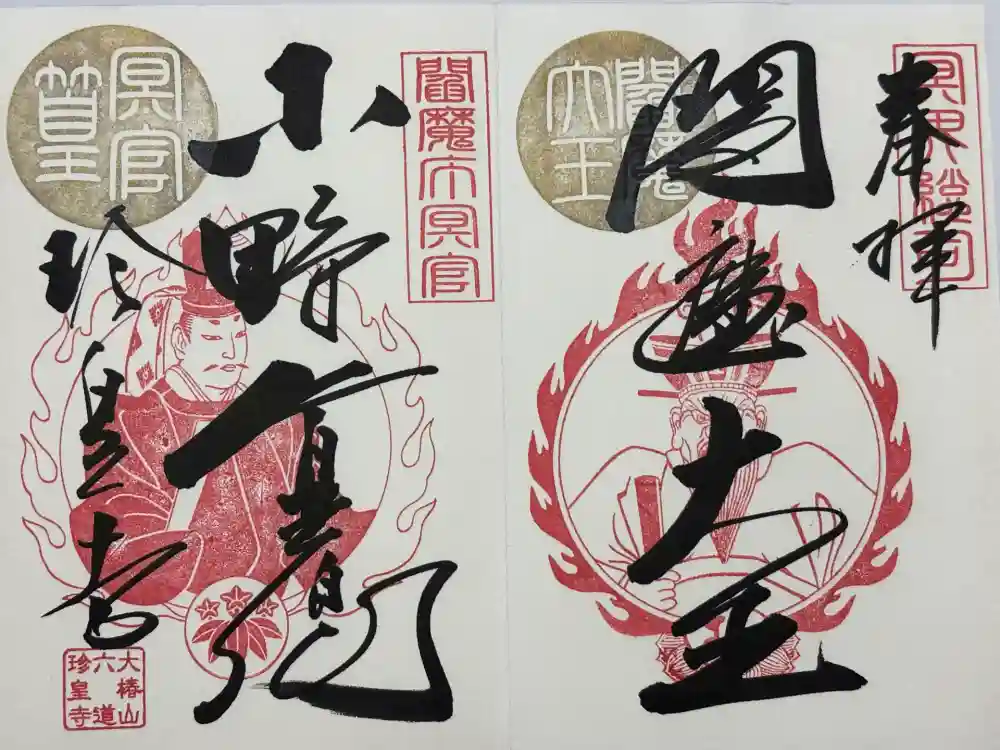 奉拝
閻魔大王
閻魔大王
閻魔庁冥官
小野篁卿
冥官篁
珍皇寺
大椿山
六道
珍皇寺